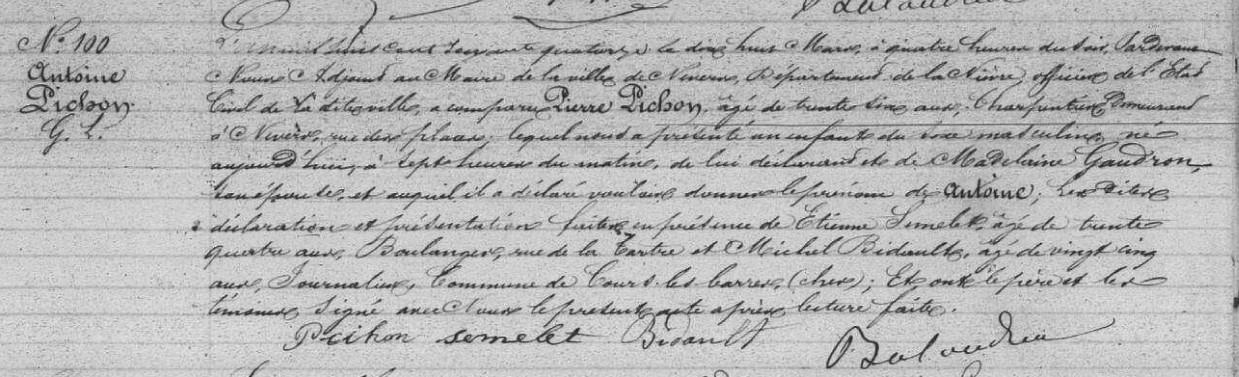 N.° 100
Antoine
Pichon
G. L.
L'an mil huit cent soixante quatorze le dix huit Mars, à quatre heures du soir, Pardevant
Nous Adjoint au Maire de la ville de Nevers, Département de la Nièvre, officier de l'Etat
Civil de la dite ville, a comparu Pierre Pichon, âgé de trente six ans, Charpentier, Demeurant
à Nevers, rue des places; lequel nous a présenté un enfant du sexe masculin, né
aujourd'hui, à sept heures du matin, de lui déclarant et de Madelaine Gaudron,
son épouse, et auquel il a déclaré vouloir donner le prénom de Antoine; Les dites
déclaration et présentation faites en présence de Etienne Semelet, âgé de trente
quatre ans, Boulanger, rue de la Tartre et Michel Bidault, âgé de vingt cinq
ans, Journalier, Commune de Cours les barres, (cher); Et ont le père et les
témoins signé avec Nous le présent acte après lecture faite.
Pichon semelet Bidault